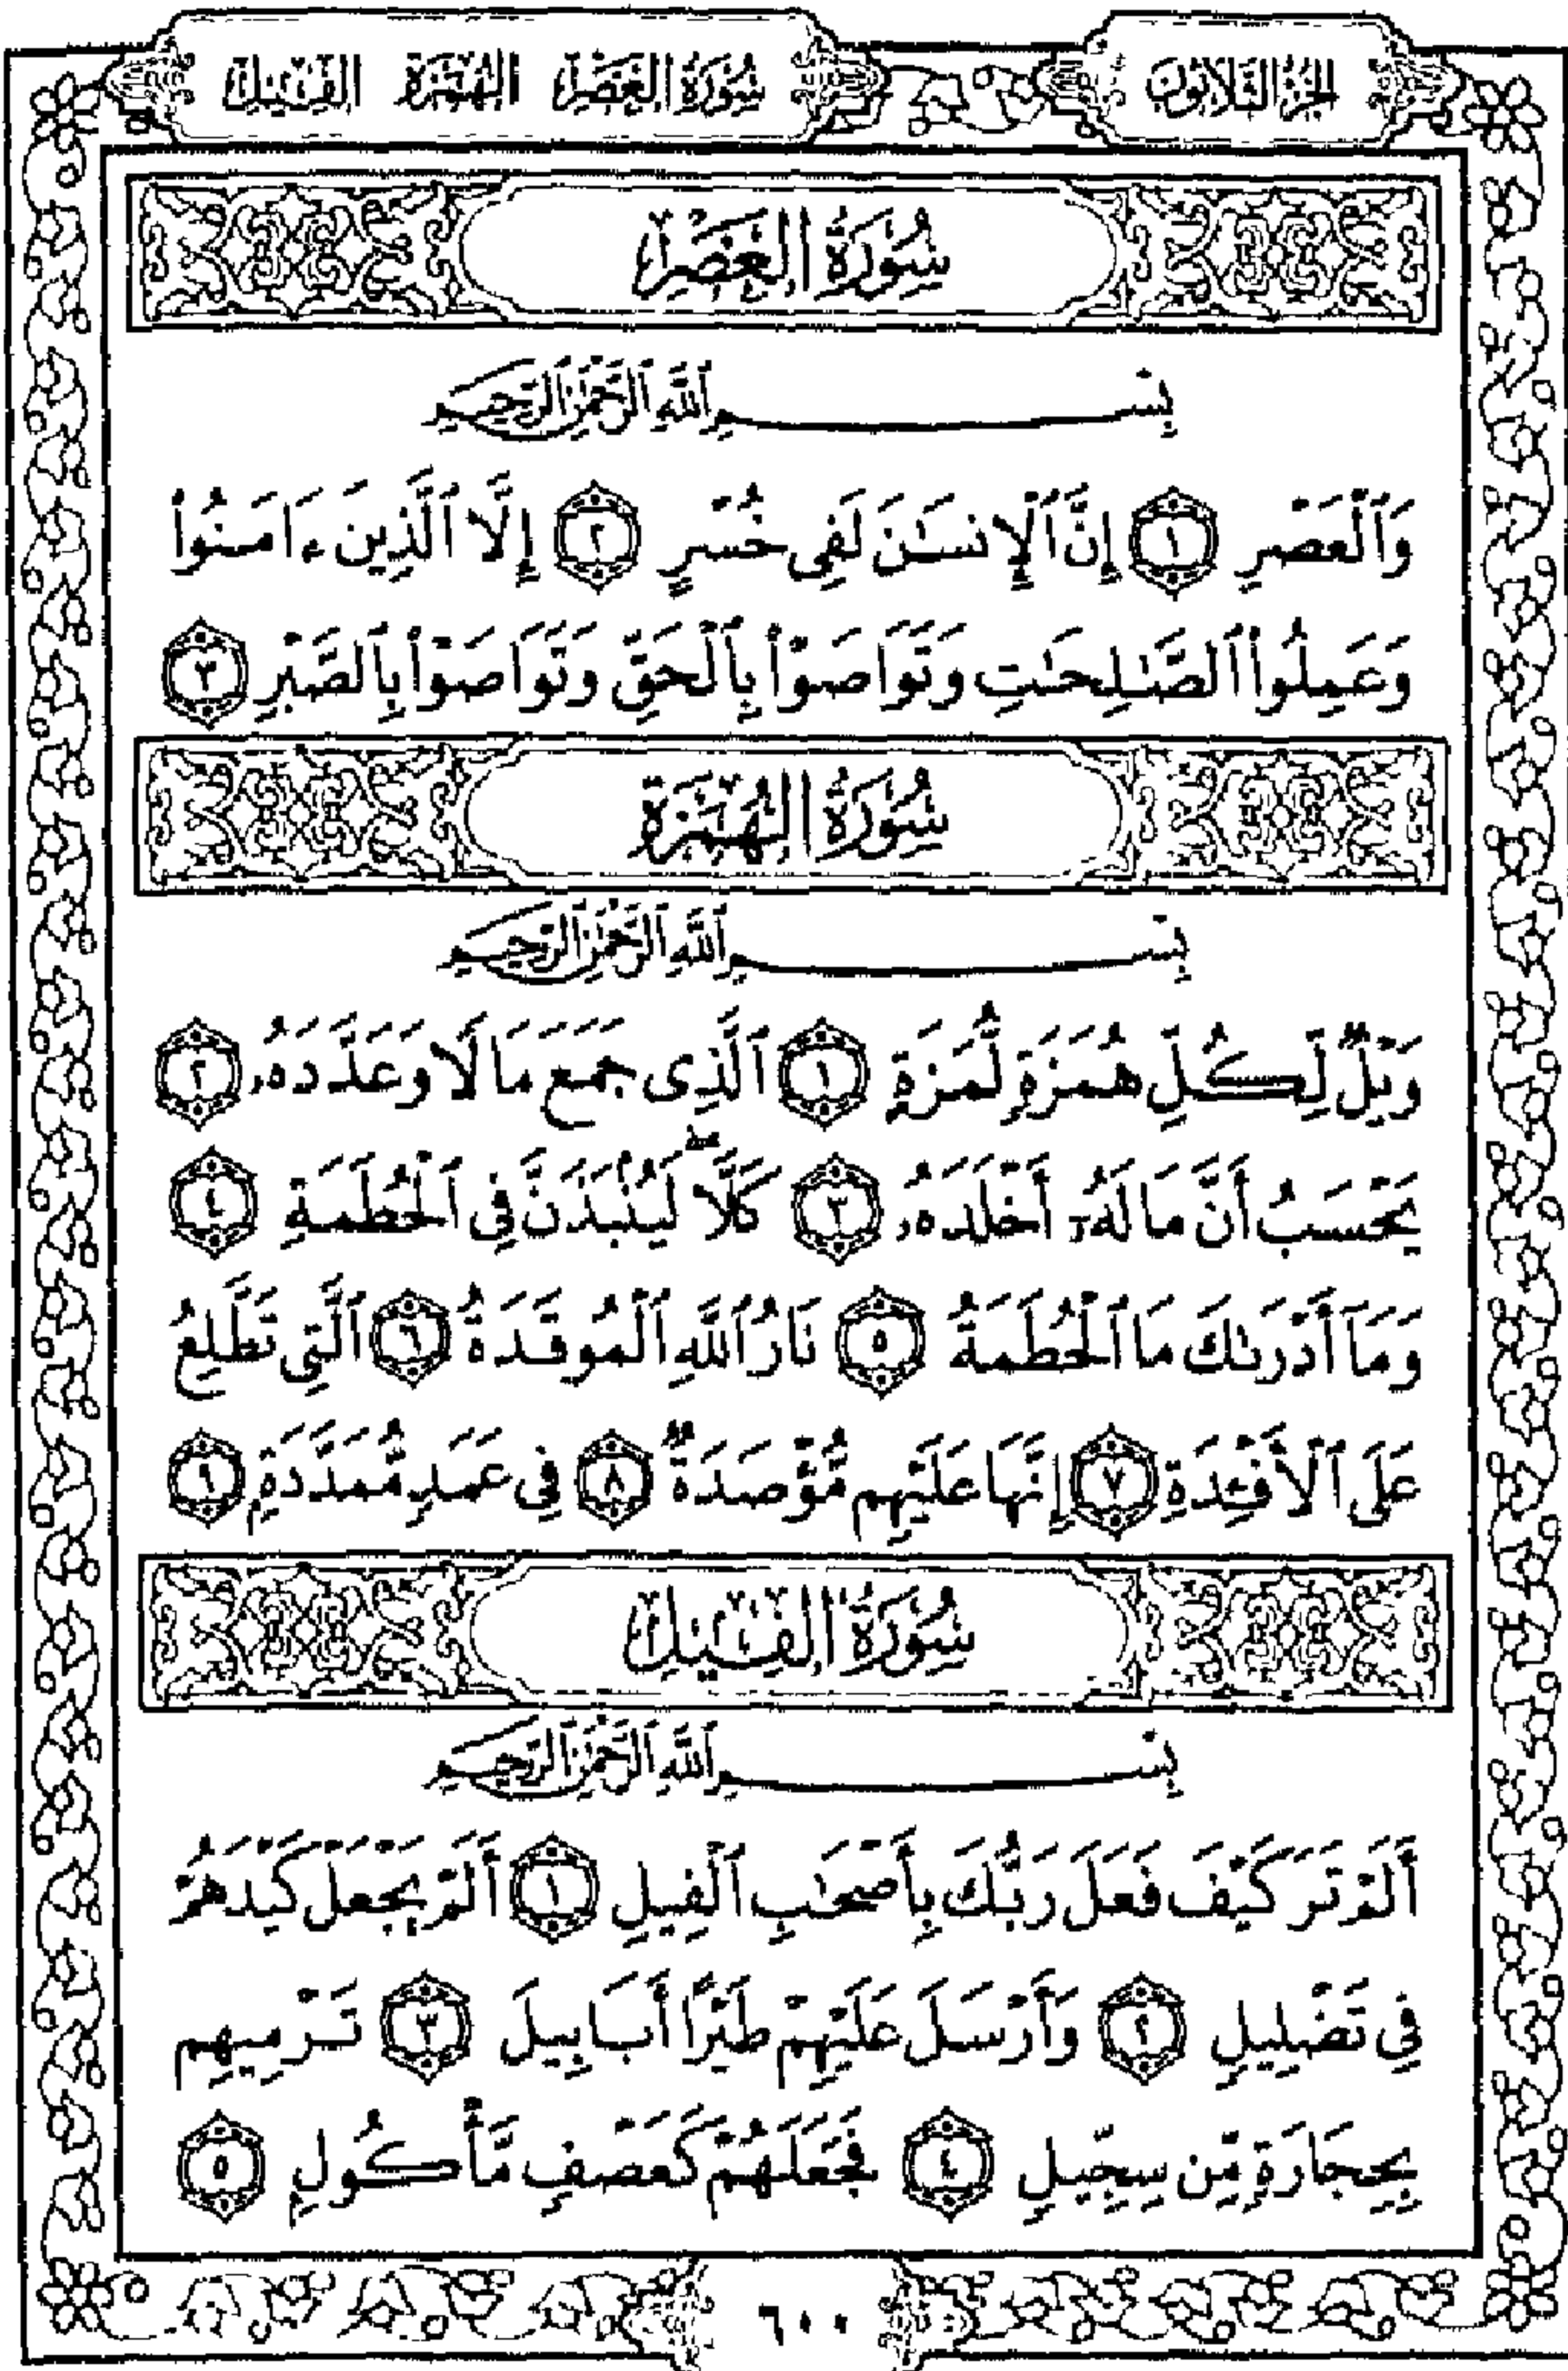 الجزء الثلاثون
سورة العصر الهمزة الفيل
سُورَةُ العَصْرِ
بِسْمِ ٱللَّهِ ٱلرَّحْمَٰنِ ٱلرَّحِيمِ
وَٱلْعَصْرِ ١ إِنَّ ٱلْإِنسَٰنَ لَفِى خُسْرٍ ٢ إِلَّا ٱلَّذِينَ ءَامَنُوا۟
وَعَمِلُوا۟ ٱلصَّٰلِحَٰتِ وَتَوَاصَوْا۟ بِٱلْحَقِّ وَتَوَاصَوْا۟ بِٱلصَّبْرِ ٣
سُورَةُ الهُمَزَةِ
بِسْمِ ٱللَّهِ ٱلرَّحْمَٰنِ ٱلرَّحِيمِ
وَيْلٌ لِّكُلِّ هُمَزَةٍ لُّمَزَةٍ ١ ٱلَّذِى جَمَعَ مَالًا وَعَدَّدَهُۥ ٢
يَحْسَبُ أَنَّ مَالَهُۥٓ أَخْلَدَهُۥ ٣ كَلَّا ۖ لَيُنۢبَذَنَّ فِى ٱلْحُطَمَةِ ٤
وَمَآ أَدْرَىٰكَ مَا ٱلْحُطَمَةُ ٥ نَارُ ٱللَّهِ ٱلْمُوقَدَةُ ٦ ٱلَّتِى تَطَّلِعُ
عَلَى ٱلْأَفْـِٔدَةِ ٧ إِنَّهَا عَلَيْهِم مُّؤْصَدَةٌ ٨ فِى عَمَدٍ مُّمَدَّدَةٍۭ ٩
سُورَةُ الفِيلِ
بِسْمِ ٱللَّهِ ٱلرَّحْمَٰنِ ٱلرَّحِيمِ
أَلَمْ تَرَ كَيْفَ فَعَلَ رَبُّكَ بِأَصْحَٰبِ ٱلْفِيلِ ١ أَلَمْ يَجْعَلْ كَيْدَهُمْ
فِى تَضْلِيلٍ ٢ وَأَرْسَلَ عَلَيْهِمْ طَيْرًا أَبَابِيلَ ٣ تَرْمِيهِم
بِحِجَارَةٍ مِّن سِجِّيلٍ ٤ فَجَعَلَهُمْ كَعَصْفٍ مَّأْكُولٍۭ ٥
٦٠٠